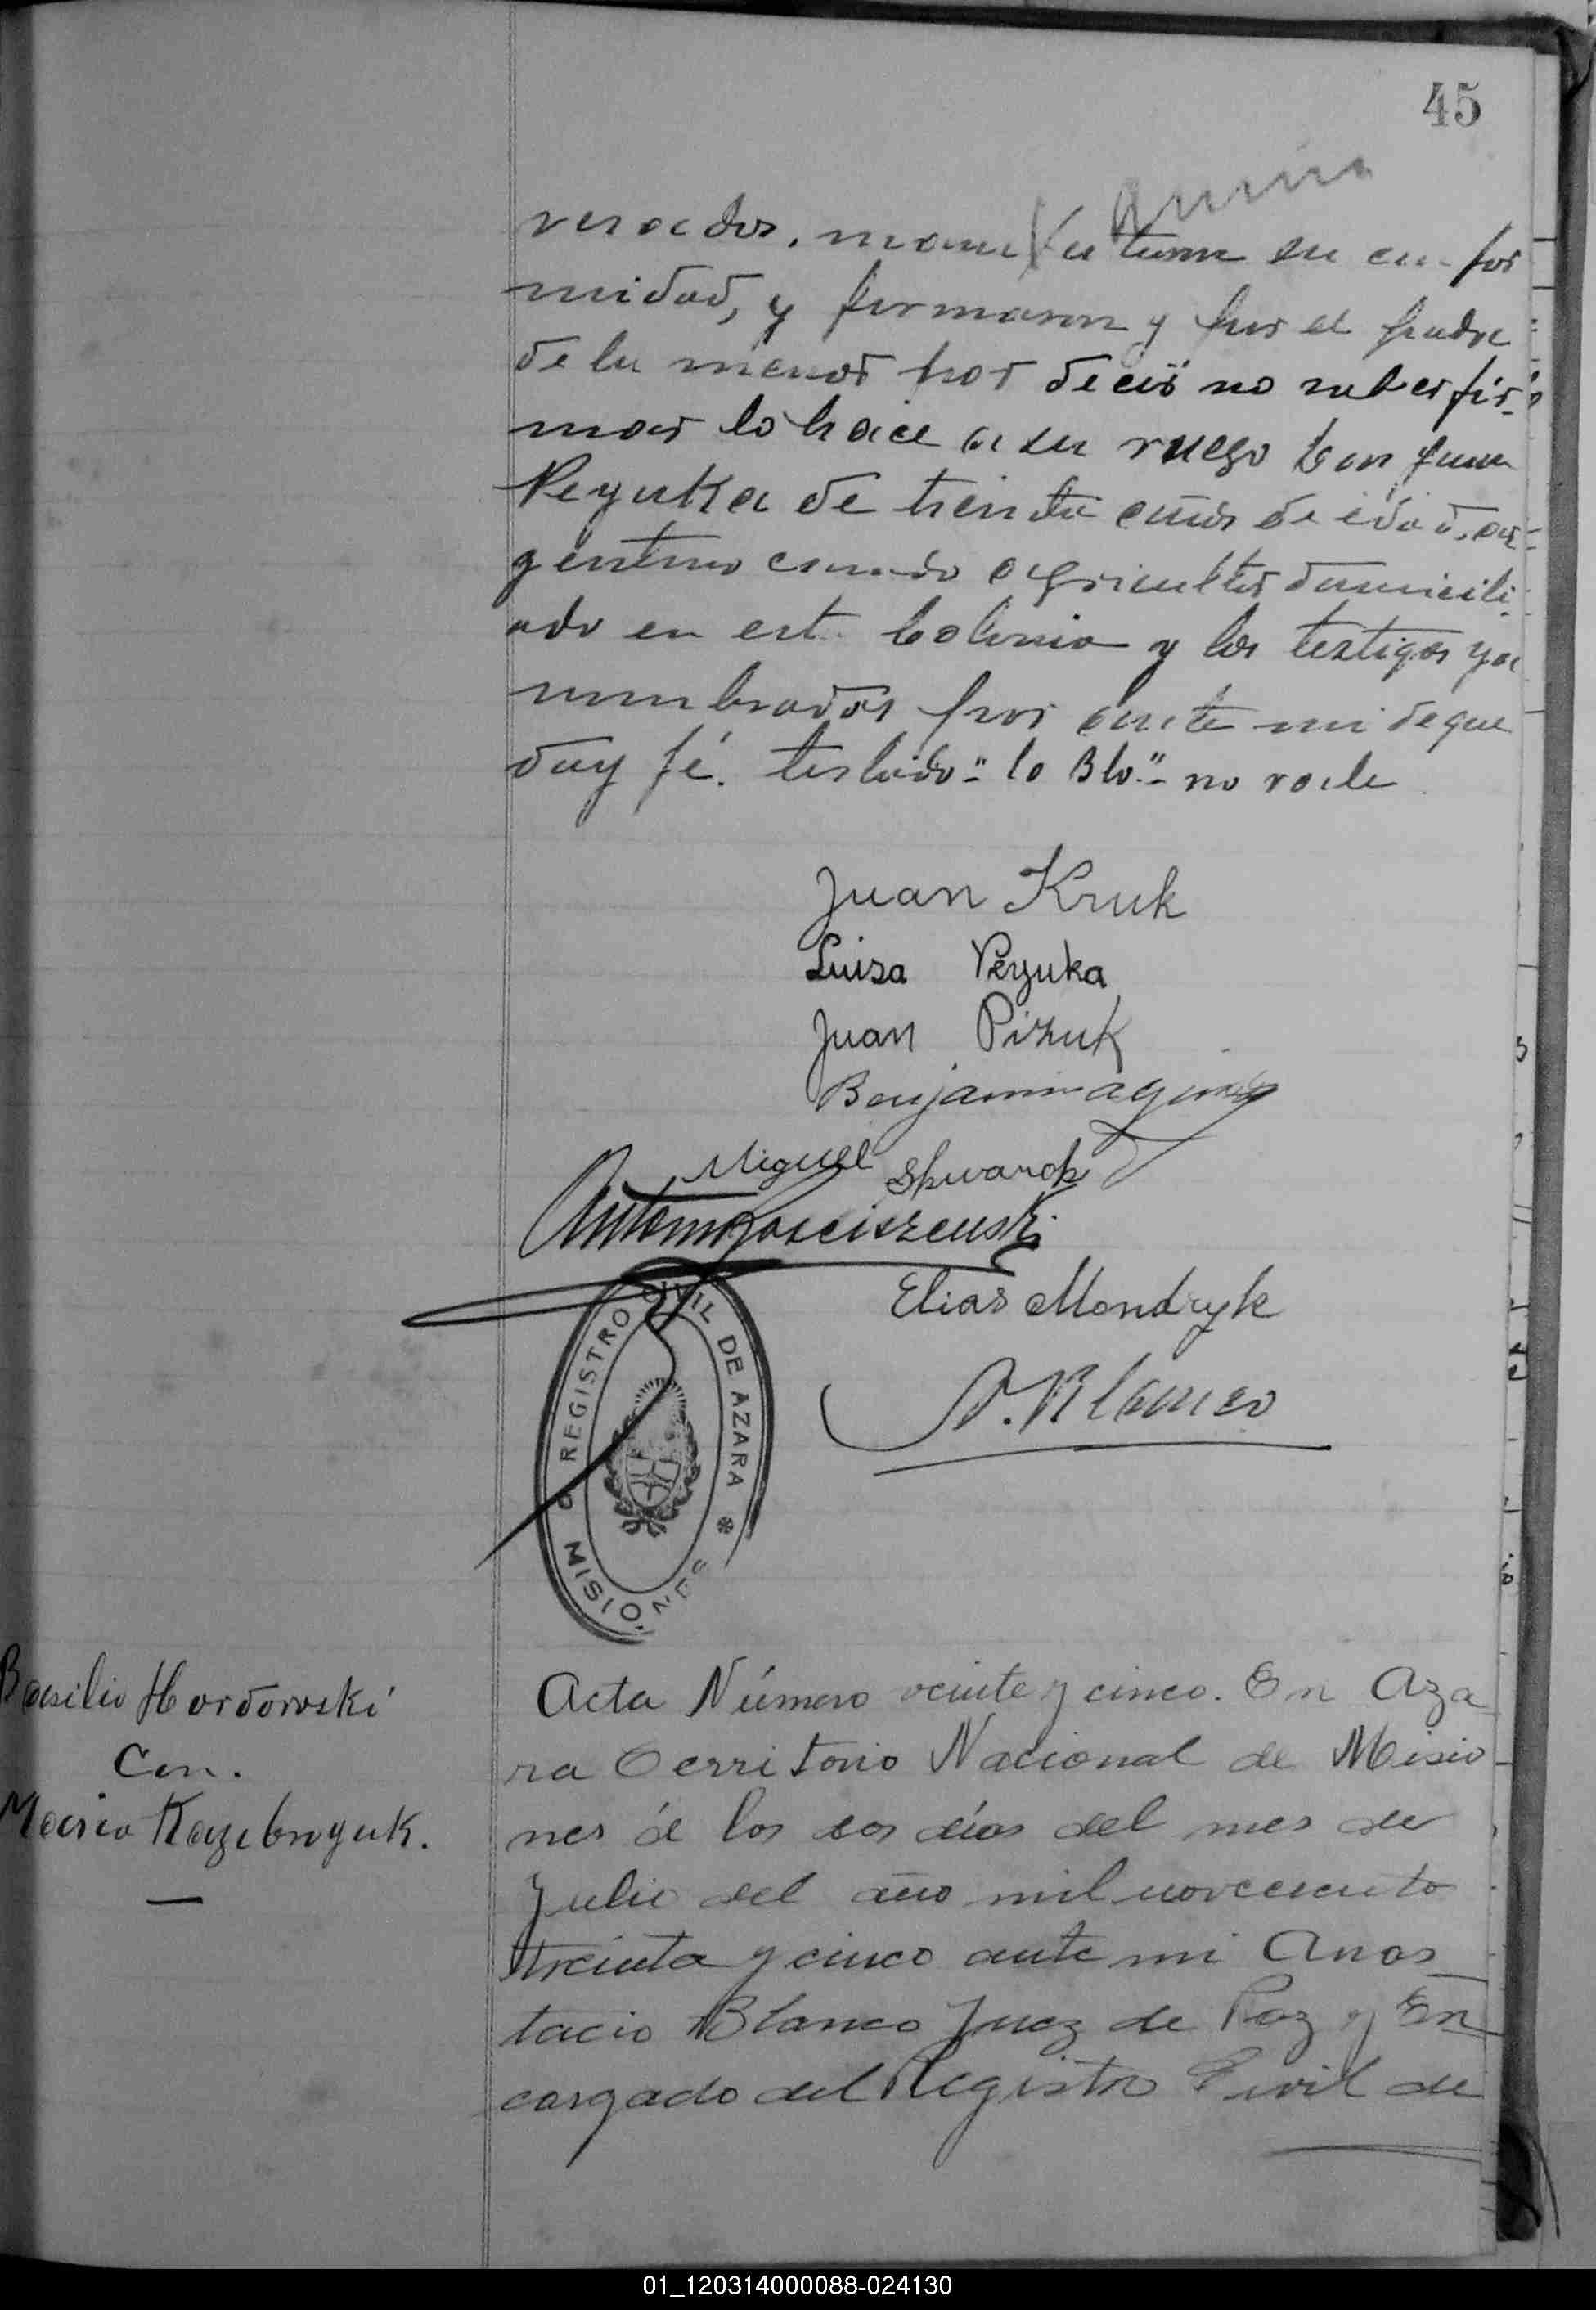 45
veracdos, manifestaron su confor
midad, y firmaron y por el padre
de la menor por decir no saber fir-
mar lo hace a su ruego Don Juan
Peyuka de treinta años de edad, ar-
gentino casado agricultor domicili-
ado en esta Colonia y los testigos ya
nombrados por ante mi de que
doy fé. testado "lo Blo." no vale
Juan Kruk
Luisa Peyuka
Juan Pizuk
Benjamin
Miguel Skwarok
Antonio
Elias Mondryk
A. Blanco
REGISTRO CIVIL DE AZARA * MISIONES
Basilio Hordorvski
Con.
Maria Kazibroyuk.
Acta Número veinte y cinco. En Aza
ra Territorio Nacional de Misio
nes á los dos días del mes de
Julio del año mil novecientos
treinta y cinco ante mi Anas
tacio Blanco Juez de Paz y En
cargado del Registro Civil de
01_120314000088-024130